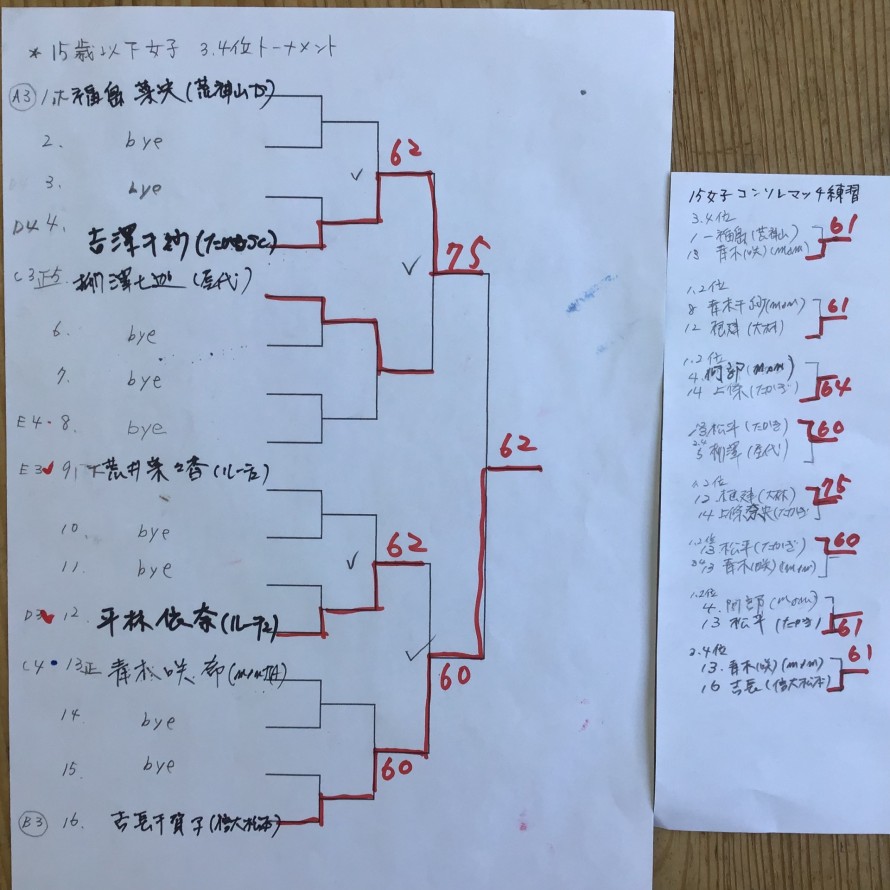 * 15歳以下女子 3.4位トーナメント
A3 1. 福島 菜央(荒神山
2. bye
3. bye
62
D4 4. 吉澤千紗(たかぎSC)
75
C3 正5. 柳澤七迦(屋代)
6. bye
7. bye
E4・8. bye
62
E3 9. 荒井菜々香(ルーセ)
10. bye
62
11. bye
D3 12. 平林依奈(ルーセ)
C4・13正 青木咲
60
14. bye
15. bye
60
B3 16. 吉長千賀子(信大松本)
15女子コンソレマッチ練習
3.4位
61
1 福島(荒神山)
13 青木(咲)(mom)
1.2位
8 青木千紗(mom)
61
12 根建(大林)
1.2位
4. 阿部(mom)
14 上條(たかぎ)
64
13 松平(たかぎ)
60
5 柳澤(屋代)
1.2位
75
12. 根建(大林)
14 上條奈央(たかぎ
1.2位
60
13 松平(たかぎ)
13 青木(咲)(mom)
1.2位
4. 阿部(mom)
13 松平(たかぎ)
61
3.4位
61
13. 青木(咲)(mom)
16 吉長(信大松本)